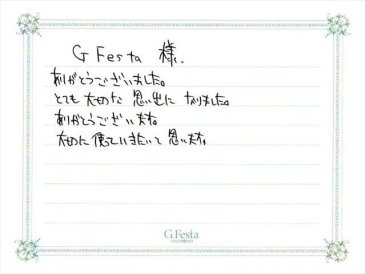 G Festa 様.
ありがとうございました。
とても大切な思い出になりました。
ありがとうございます。
大切に使っていきたいと思います。
G.Festa